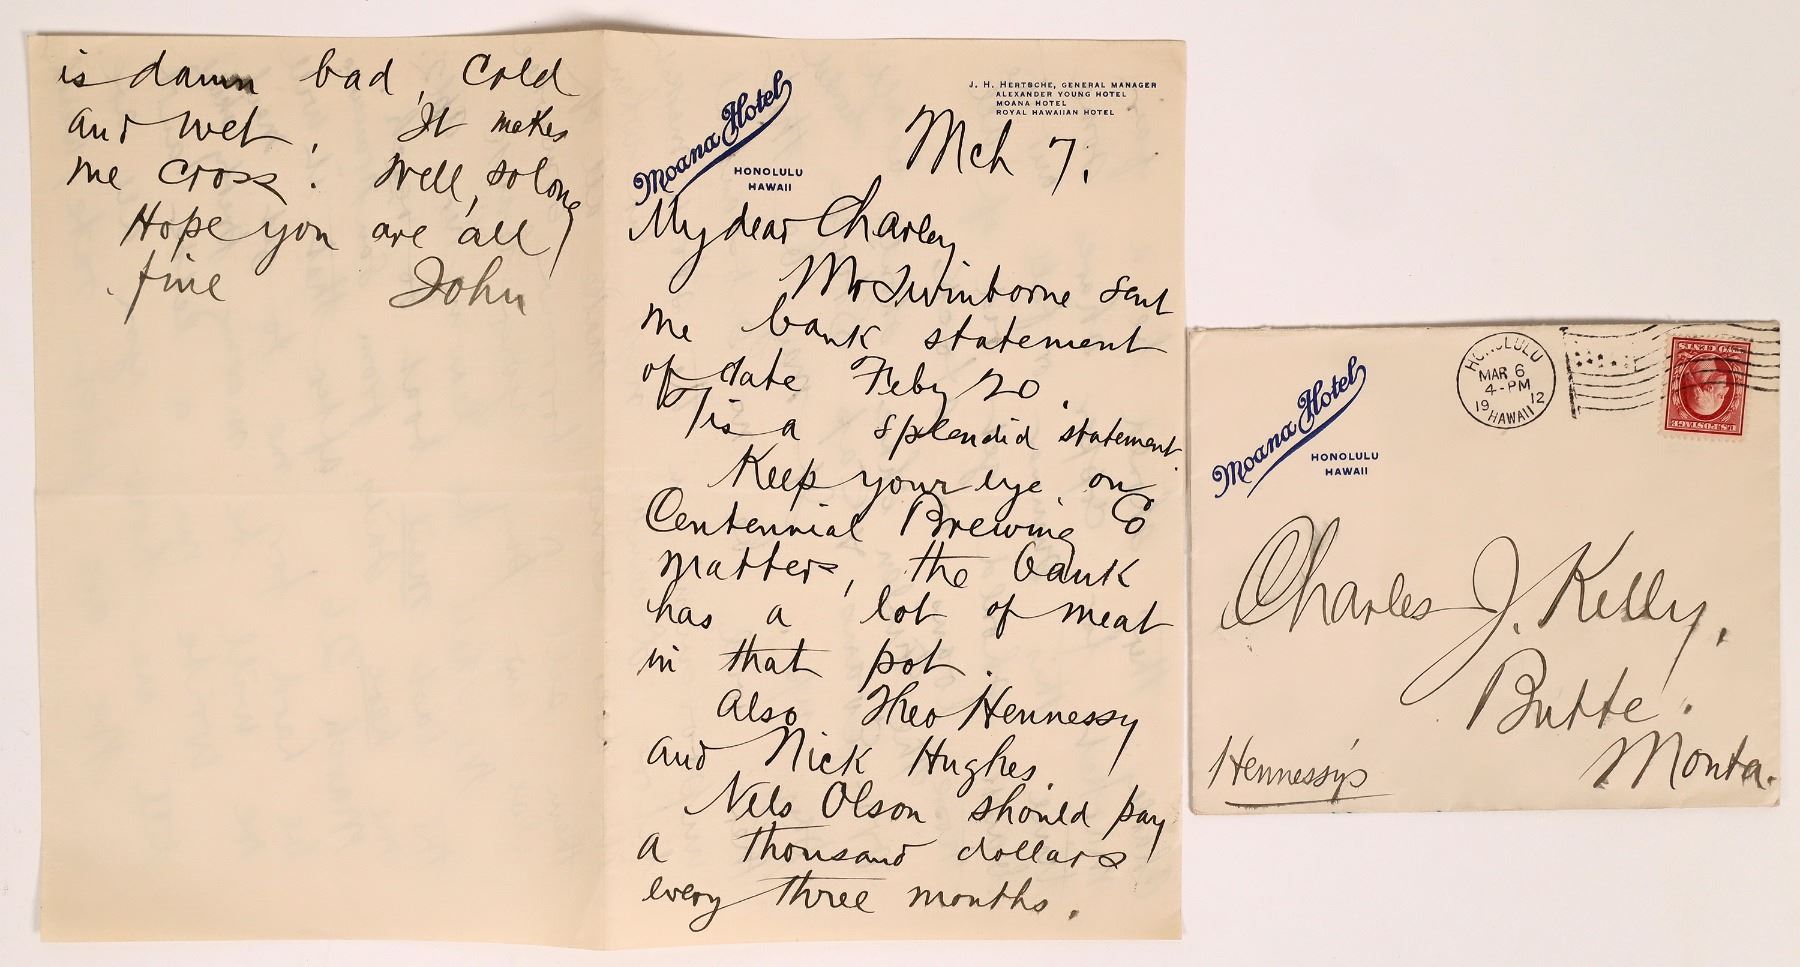 is damn bad, Cold
and wet. It makes
me cross. Well, so long
Hope you are all
fine John
Moana Hotel
HONOLULU
HAWAII
J. H. HERTSCHE, GENERAL MANAGER
ALEXANDER YOUNG HOTEL
MOANA HOTEL
ROYAL HAWAIIAN HOTEL
Mch 7.
My dear Charley
Mr Swinborne sent
me bank statement
of date Feby 20.
is a splendid statement.
Keep your eye on
Centennial Brewing Co
matters, the bank
has a lot of meat
in that pot.
Also Theo Hennessy
and Nick Hughes.
Nels Olson should pay
a thousand dollars
every three months.
Moana Hotel
HONOLULU
HAWAII
HONOLULU
MAR 6
4-PM
1912
HAWAII
U.S. POSTAGE
TWO CENTS
Charles J. Kelly,
Butte.
Monta.
Hennessy's